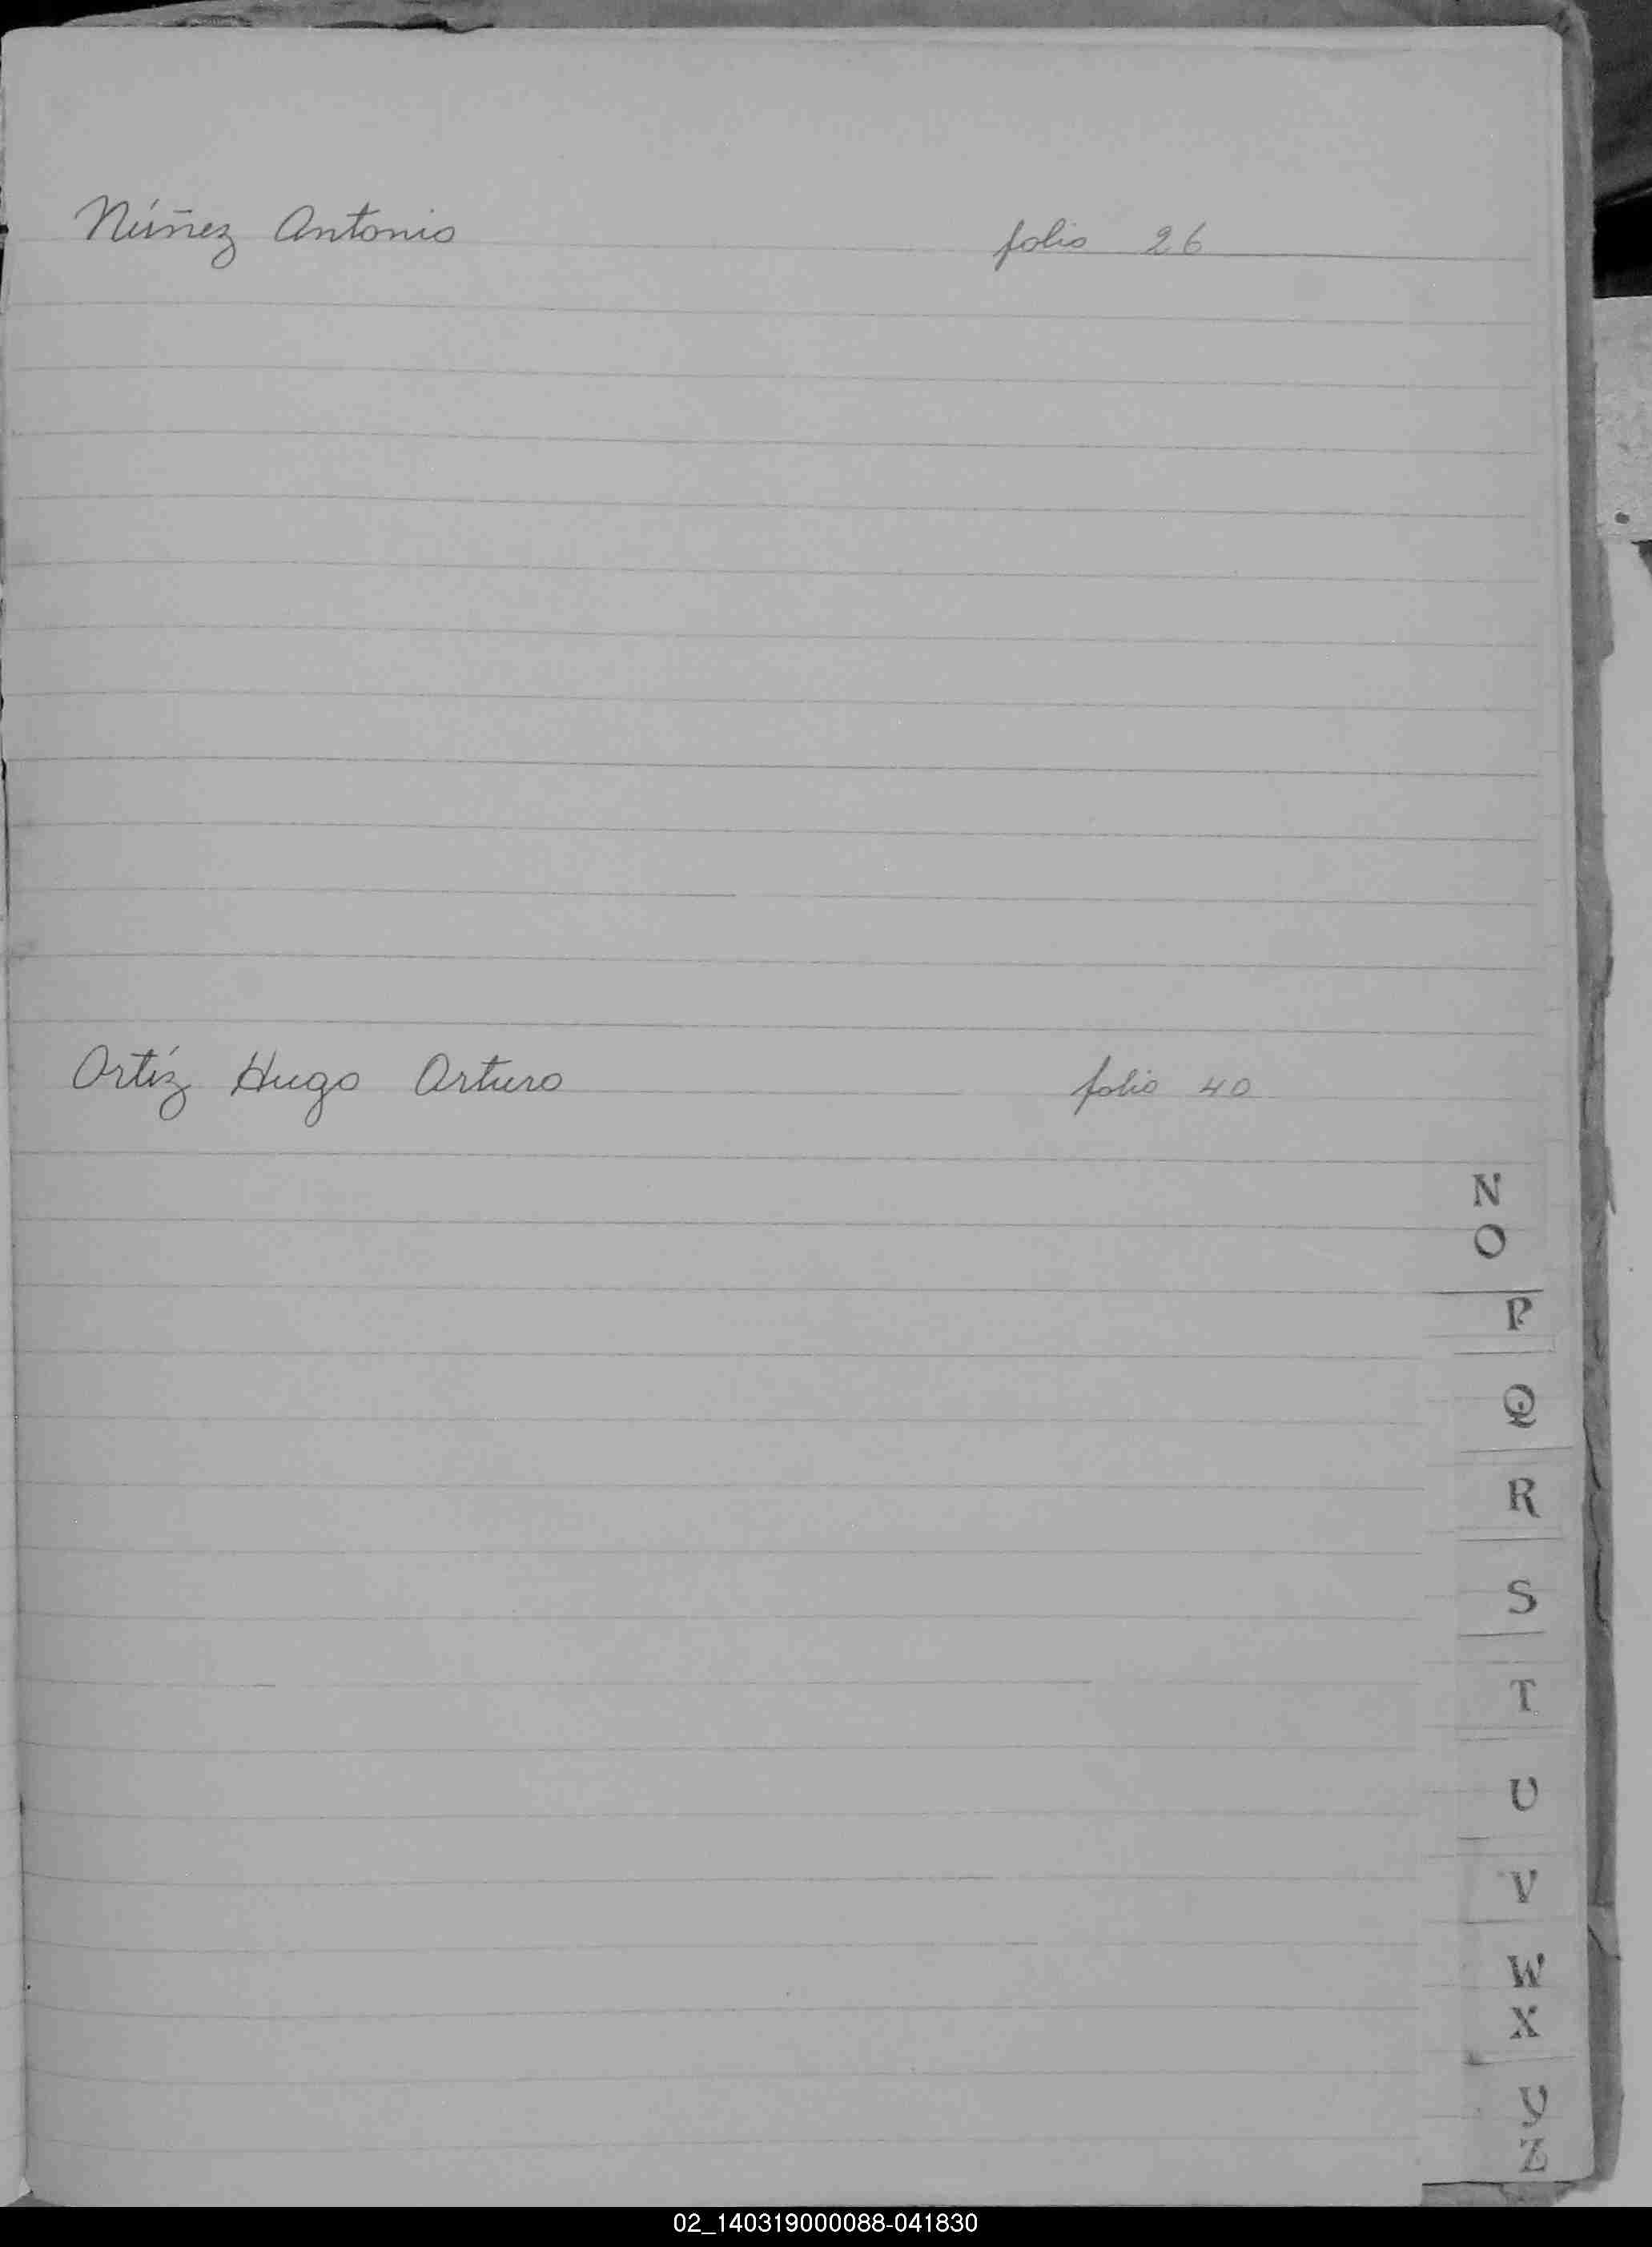 Núñez Antonio folio 26
Ortíz Hugo Arturo folio 40
N
O
P
Q
R
S
T
U
V
W
X
Y
Z
02_140319000088-041830